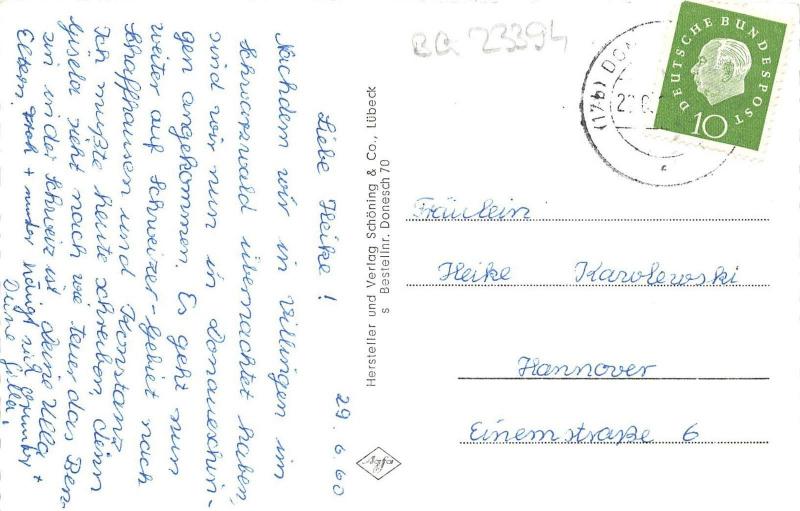 29. 6. 60
Liebe Heike!
Nachdem wir in Villingen im
Schwarzwald übernachtet haben,
sind wir nun in Donaueschin-
gen angekommen. Es geht nun
weiter auf Schweizer-Gebiet nach
Schaffhausen und Konstanz.
Ich mußte heute schreiben, denn
Gisela sieht nach wie teuer das Ben-
zin in der Schweiz ist. Deine Ulla
Eltern, + munter
Deine Gilla.
Hersteller und Verlag Schöning & Co., Lübeck
s Bestellnr. Donesch 70
Agfa
BQ 23394
(17b) DO
DEUTSCHE BUNDESPOST
10
Fräulein
Heike Karolewski
Hannover
Einemstraße 6